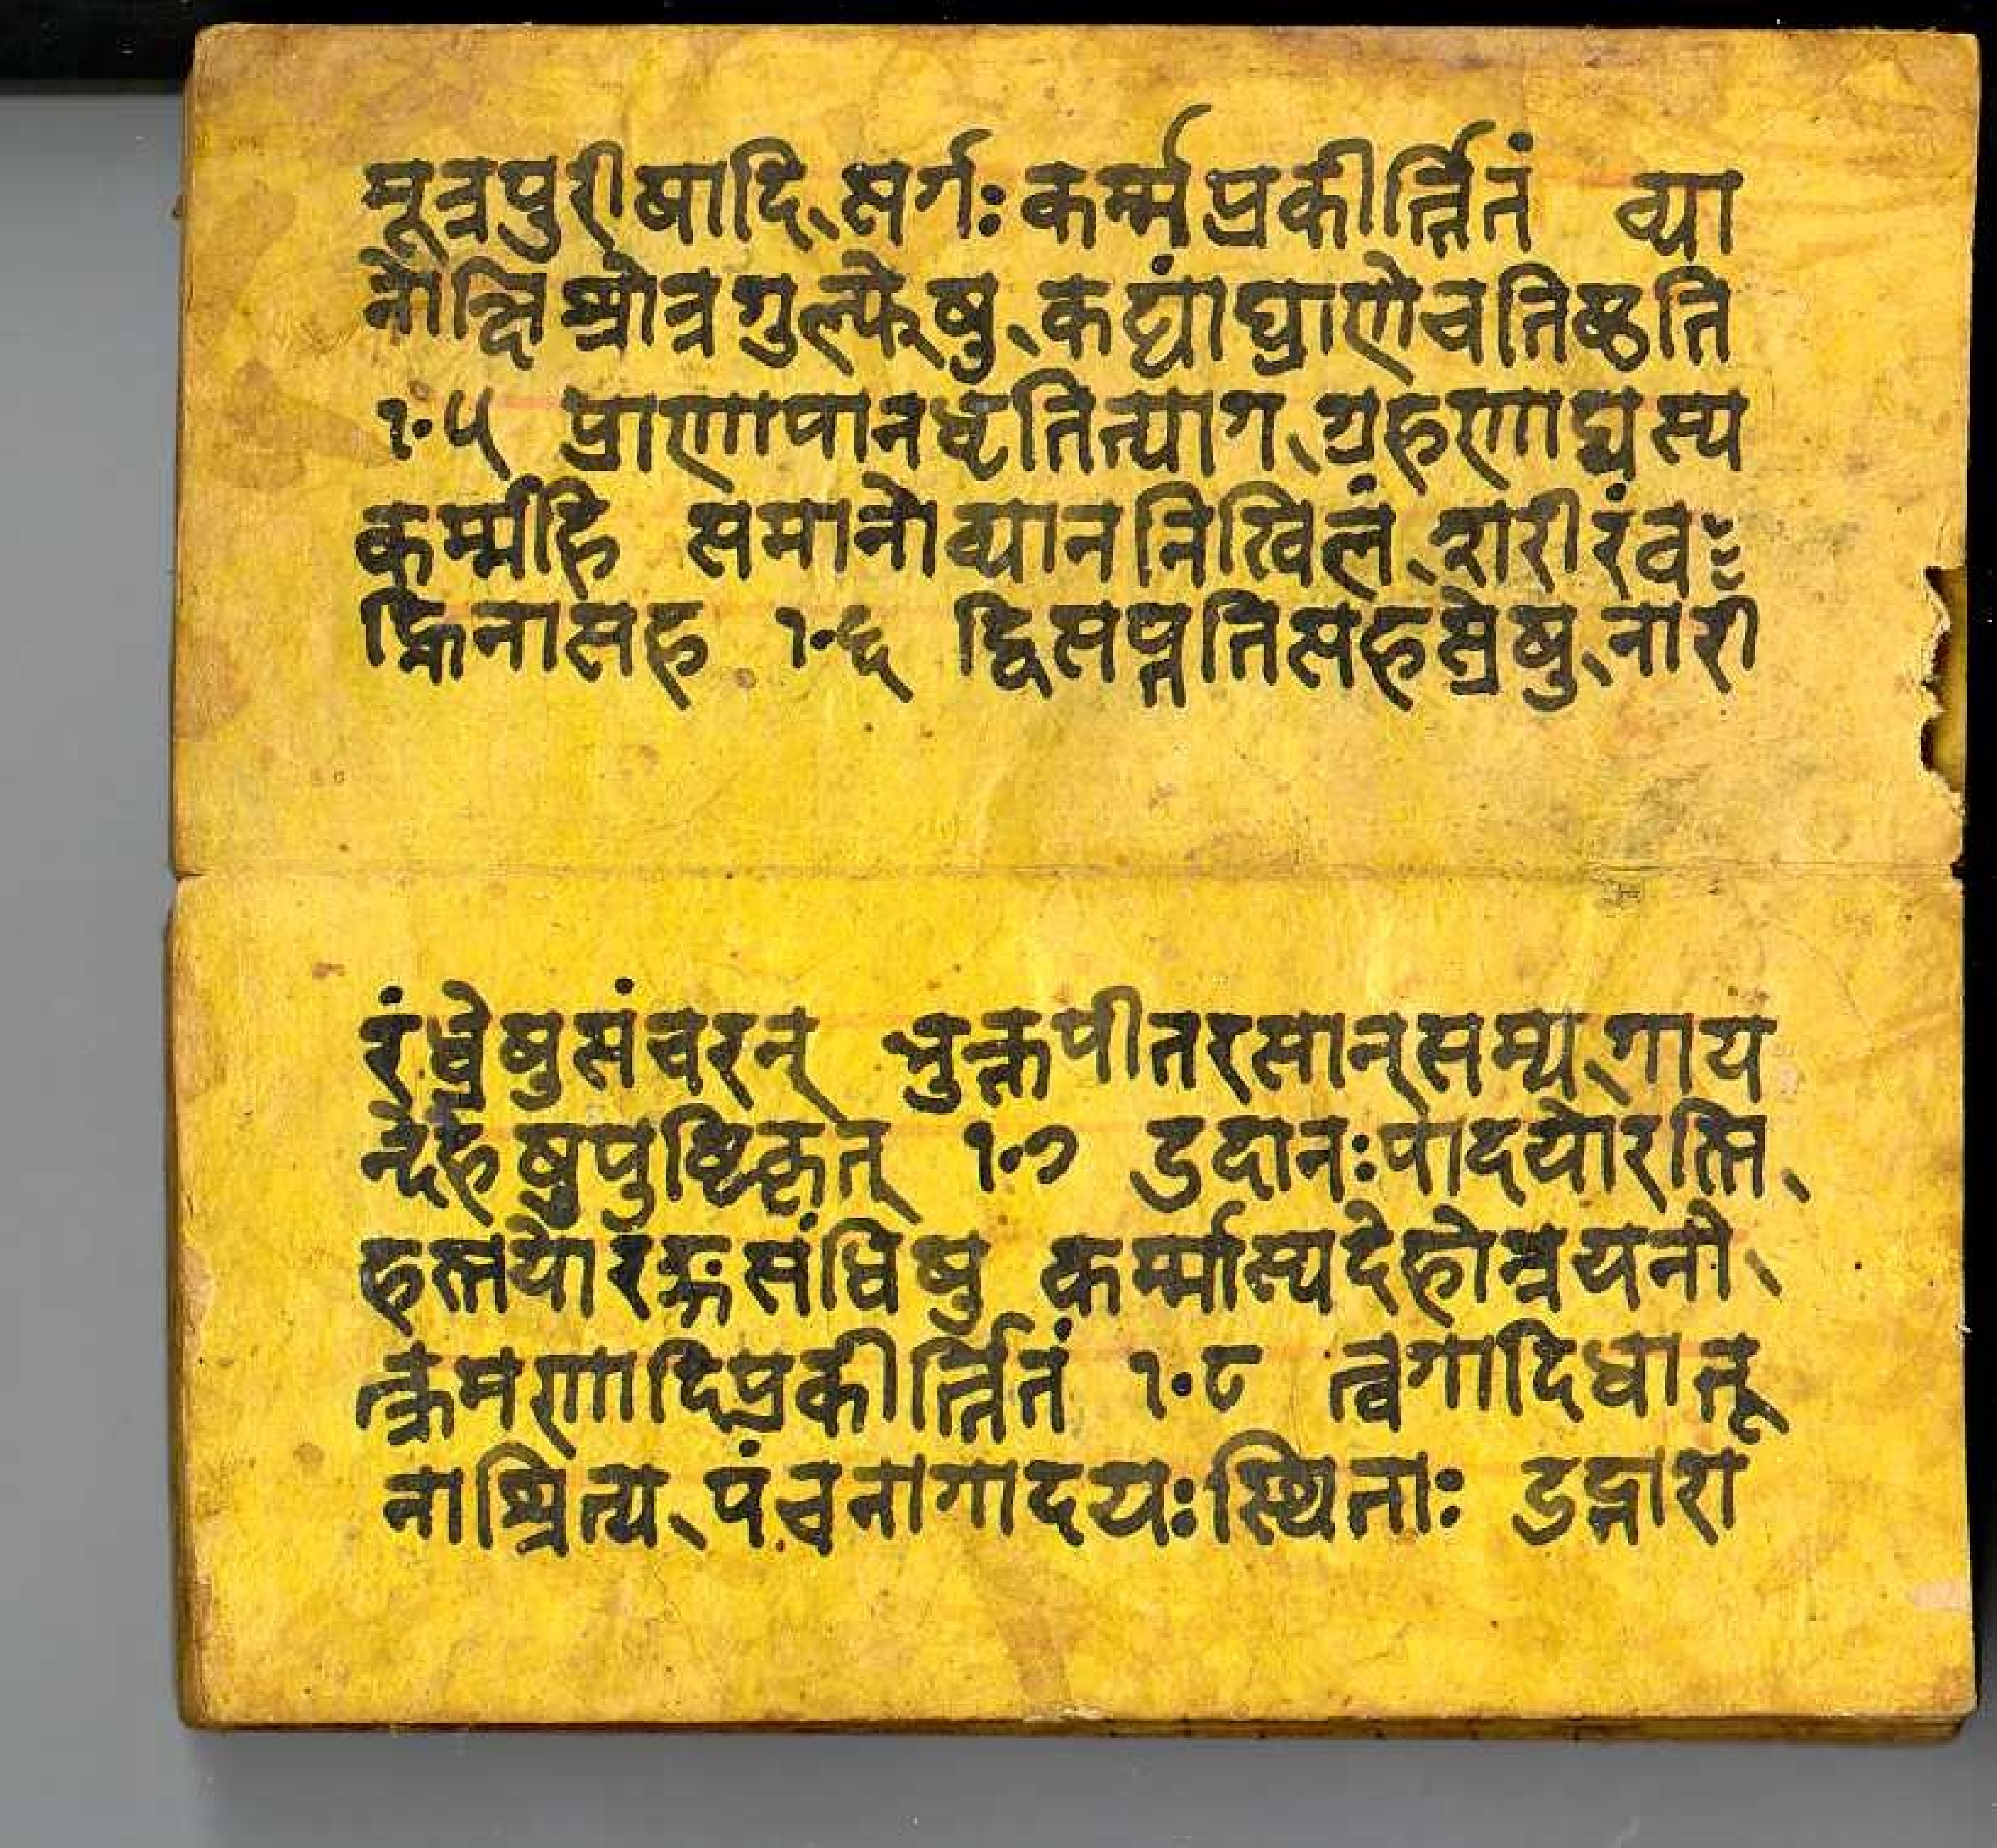 मूत्रपुरीषादि、सर्गः कर्म्म प्रकीर्त्तितं व्या
नोक्षिश्रोत्रगुल्फेषु、कट्यां घ्राणे च तिष्ठति
१०५ प्राणापानधृतित्याग、ग्रहणाद्यस्य
कर्म्महि समानो व्याननिखिलं、शरीरं व
ह्निना सह १०६ द्विसप्ततिसहस्रेषु、नारी
रंध्रेषु संचरन् भुक्तपीतरसान् सम्य、गाय
न्देहेषु पुष्टिकृत् १०७ उदानः पादयोरस्ति、
हस्तयोरङ्गसंधिषु कर्म्मास्य देहोन्नयनो、
त्क्रमणादि प्रकीर्त्तितं १०८ त्वगादिधातू
नाश्रित्य、पंच नागादयः स्थिताः उद्गारा